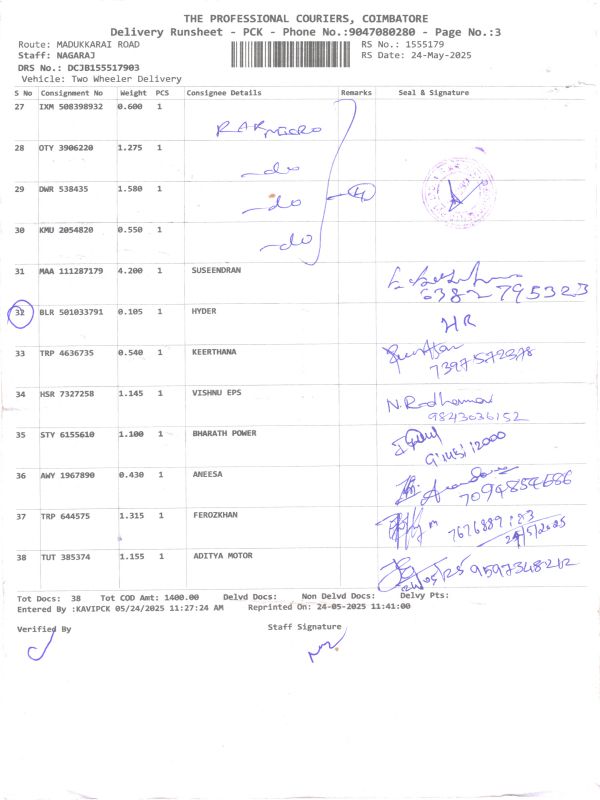 THE PROFESSIONAL COURIERS, COIMBATORE
Delivery Runsheet - PCK - Phone No.:9047080280 - Page No.:3
Route: MADUKKARAI ROAD RS No.: 1555179
Staff: NAGARAJ RS Date: 24-May-2025
DRS No.: DCJB155517903
Vehicle: Two Wheeler Delivery
S No Consignment No Weight PCS Consignee Details Remarks Seal & Signature
27 IXM 508398932 0.600 1
28 OTY 3906220 1.275 1 -do
29 DWR 538435 1.580 1 -do
30 KMU 2054820 0.550 1 -do
4
31 MAA 111287179 4.200 1 SUSEENDRAN
6382795323
32 BLR 501033791 0.105 1 HYDER HR
33 TRP 4636735 0.540 1 KEERTHANA
7397572378
34 HSR 7327258 1.145 1 VISHNU EPS
9843036152
35 STY 6155610 1.100 1 BHARATH POWER
36 AWY 1967890 0.430 1 ANEESA
7094854686
37 TRP 644575 1.315 1 FEROZKHAN
24/5/2025
38 TUT 385374 1.155 1 ADITYA MOTOR
24/05/25 9597348212
Tot Docs: 38 Tot COD Amt: 1400.00 Delvd Docs: Non Delvd Docs: Delvy Pts:
Entered By :KAVIPCK 05/24/2025 11:27:24 AM Reprinted On: 24-05-2025 11:41:00
Verified By Staff Signature